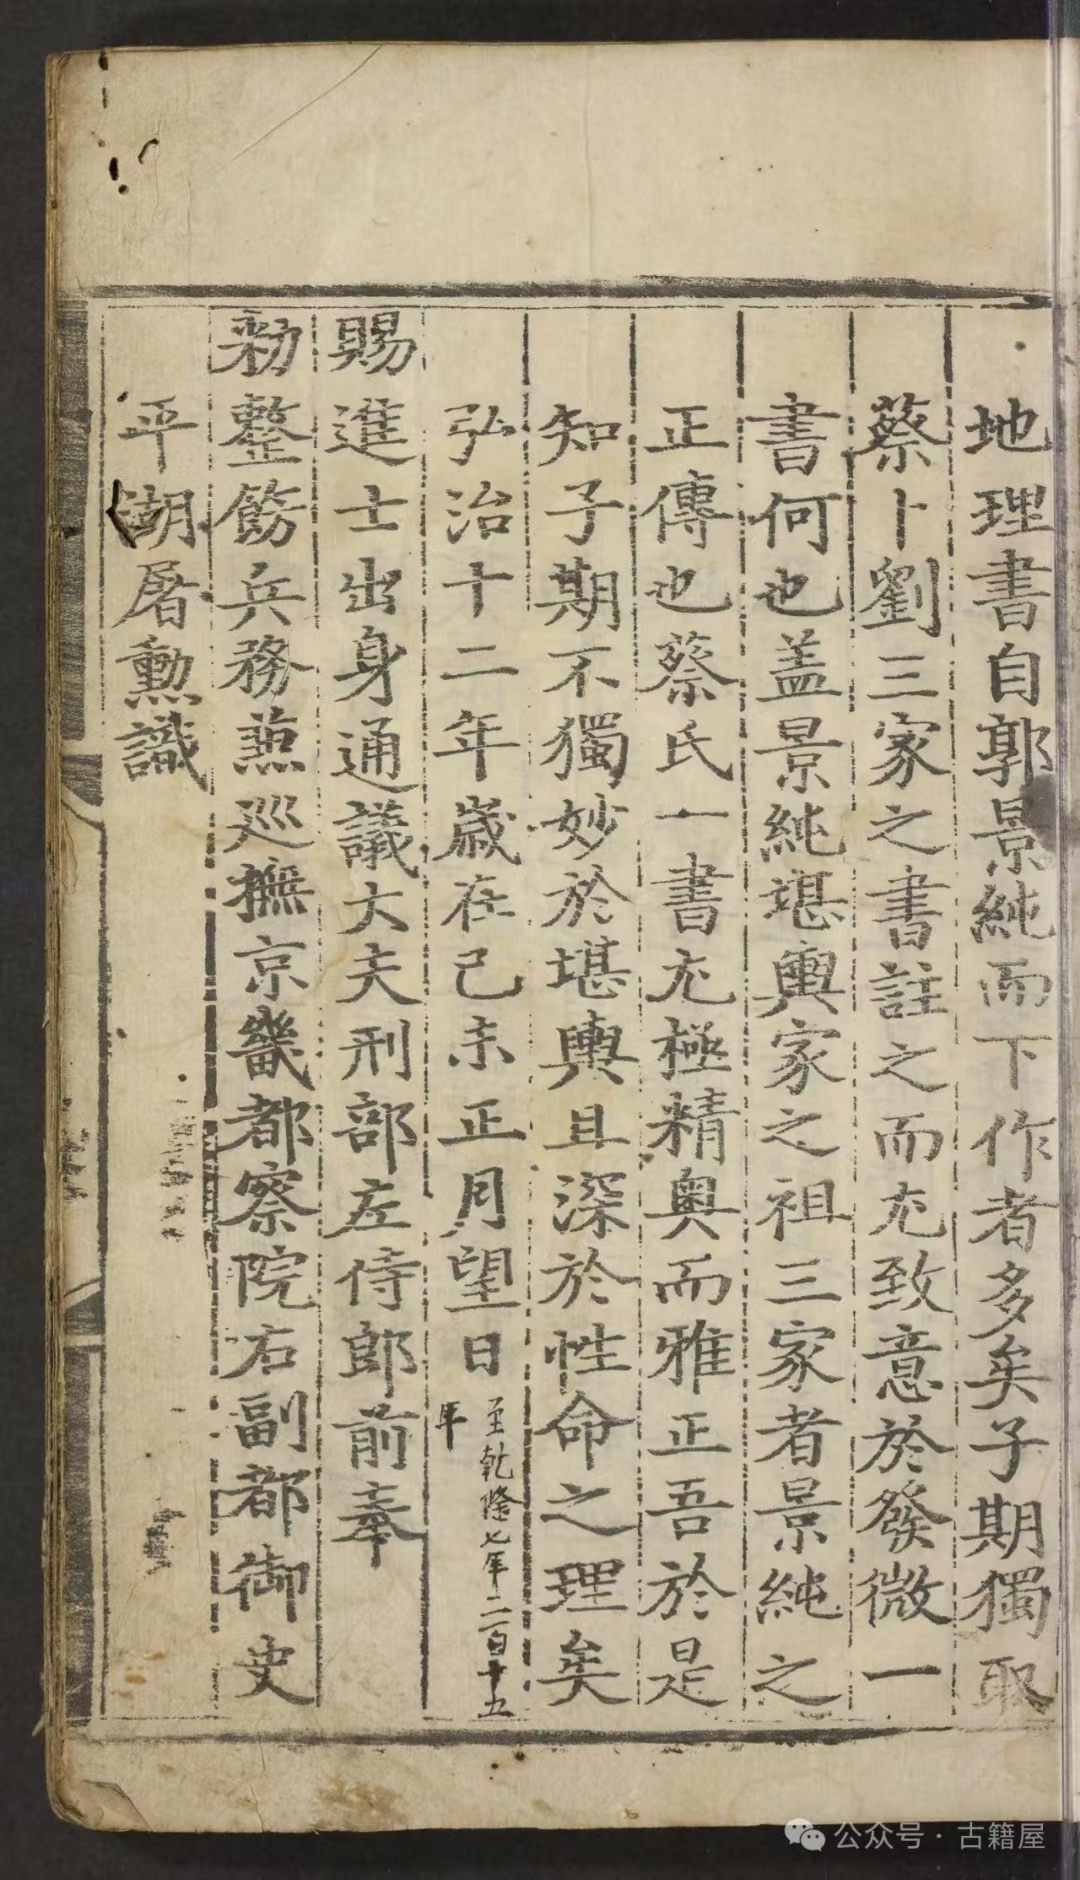 地理書自郭景純而下作者多矣子期獨取
蔡卜劉三家之書註之而尤致意於發微一
書何也盖景純堪輿家之祖三家者景純之
正傳也蔡氏一書尤極精奧而雅正吾於是
知子期不獨妙於堪輿且深於性命之理矣
弘治十二年歲在己未正月望日
至乾隆七年二百十五
年
賜進士出身通議大夫刑部左侍郎前奉
勑整飭兵務兼巡撫京畿都察院右副都御史
平湖屠勳識
公众号·古籍屋